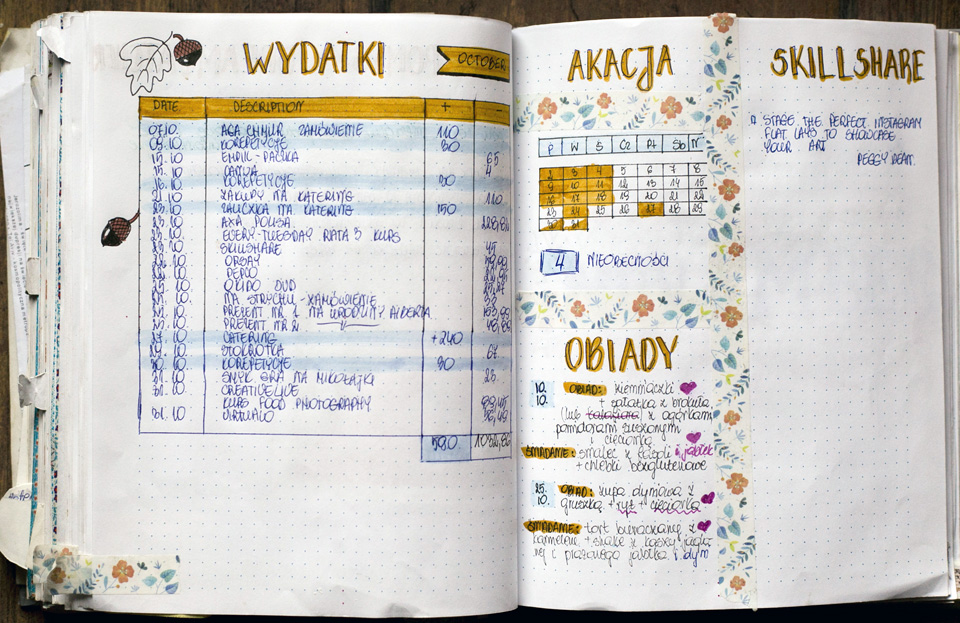 WYDATKI
OCTOBER
DATE DESCRIPTION + -
07.10. AGA CHMUR ZAMÓWIENIE 110
09.10. KOREPETYCJE 30
15.10. EMPIK - PACZKA 65
15.10. 4
16.10. KOREPETYCJE 30
21.10. ZAKUPY NA KATERING 110
23.10. ZALICZKA NA KATERING 150
23.10. AXA POLISA
23.10. EVERY-TUESDAY RATA 3 KURS
23.10. SKILLSHARE 45
22.10. ORSAY
22.10. PEPCO
25.10. OKIDO DVD
25.10. NA STRYCHU - ZAMÓWIENIE 38
25.10. PREZENT NR 1 NA URODZINY
25.10. PREZENT NR 2
27.10. CATERING +240
29.10. STOKROTKA 67
30.10. KOREPETYCJE 30
31.10. SMYK GRA NA MIKOŁAJKI 23.
31.10. CREATIVELIVE
KURS FOOD PHOTOGRAPHY
31.10 VIRTUALO
590
AKACJA
P W Ś Cz Pt Sb N
2 3 4 5 6 7 8
9 10 11 12 13 14 15
16 17 18 19 20 21 22
23 24 25 26 27 28 29
30 31
4 NIEOBECNOŚCI
OBIADY
10. 10. OBIAD: ziemniaczki
+ sałatka z brokuła
(lub kalafiora) z ogórkami
pomidorami suszonymi
i cieciorką
ŚNIADANIE: smalec z fasoli i jabłek
+ chlebki bezglutenowe
25. 10. OBIAD: zupa dyniowa z
gruszką + ryż + cieciorka
ŚNIADANIE: tort buraczany z
karmelem + shake z kaszy jagla
nej i prażonego jabłka i dyni
SKILLSHARE
STAGE THE PERFECT INSTAGRAM
FLAT LAYS TO SHOWCASE
YOUR ART
PEGGY DEAN.